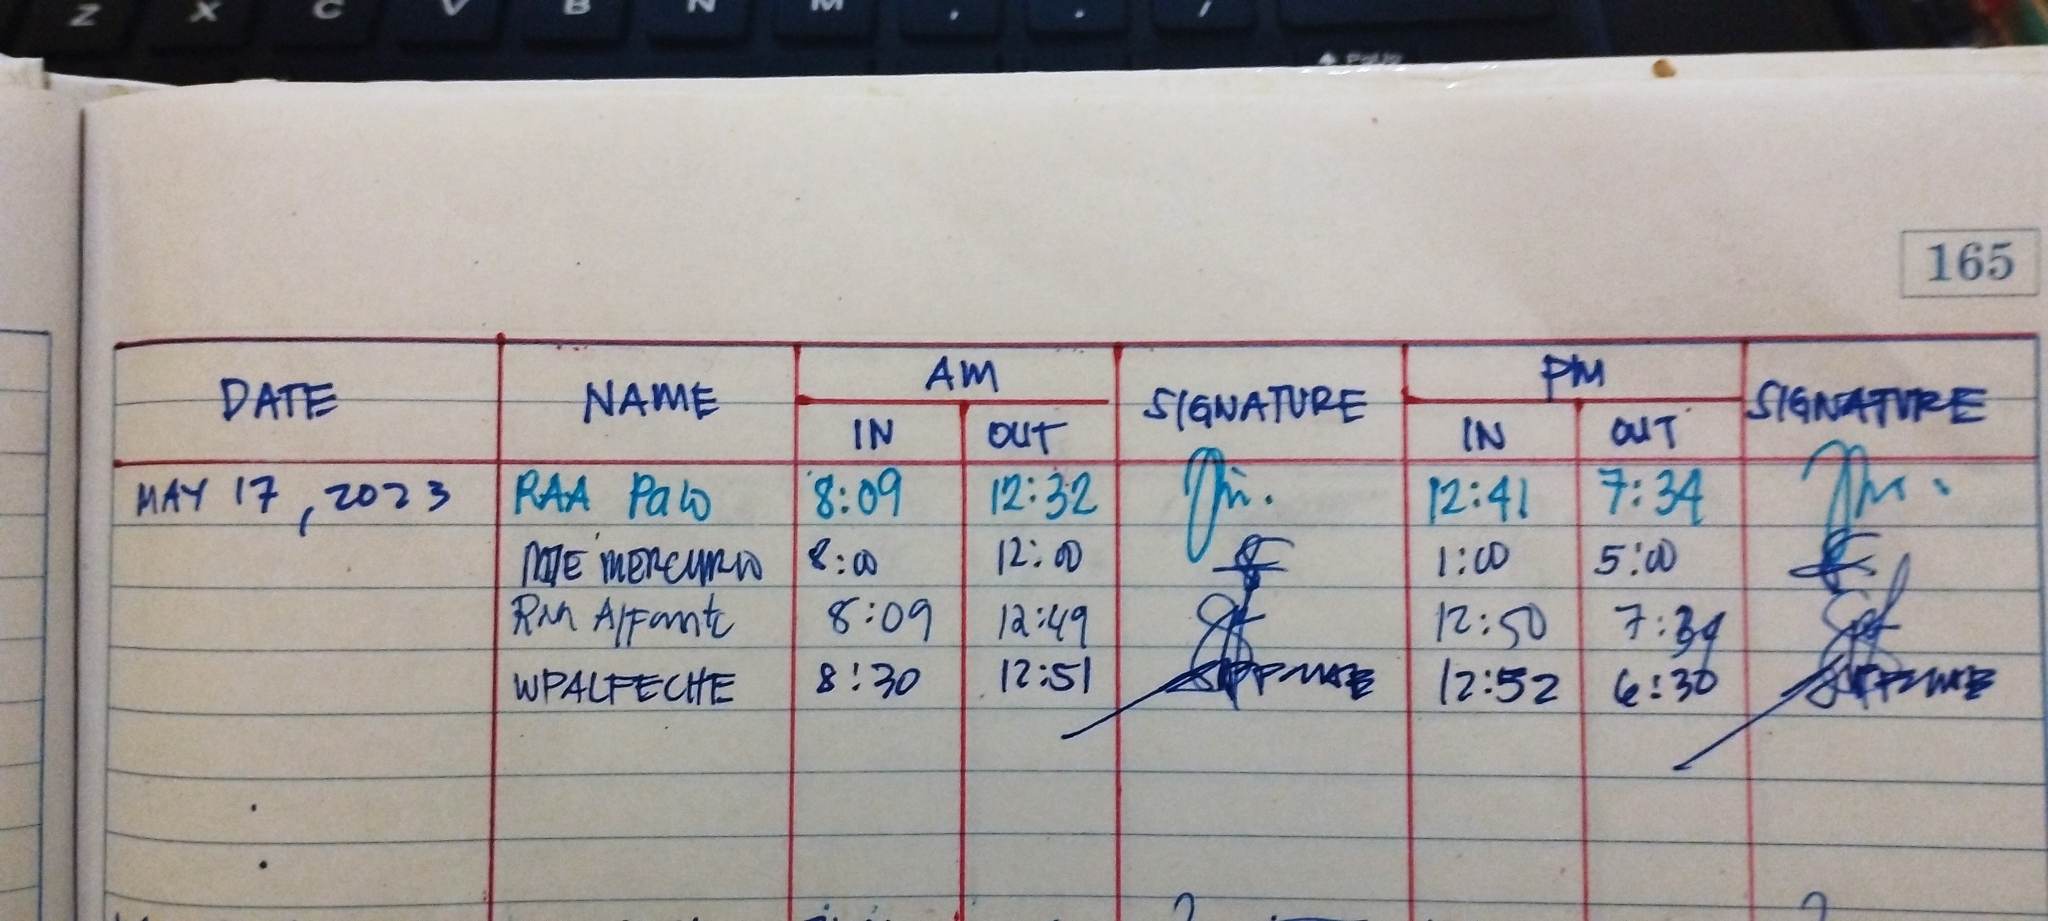 Z X C V B N M , . /
PgUp
165
DATE NAME AM SIGNATURE PM SIGNATURE
IN OUT IN OUT
MAY 17, 2023 RAA Palo 8:09 12:32 12:41 7:34
MERCURIO 8:00 12:00 1:00 5:00
RM Alfante 8:09 12:49 12:50 7:34
WPALFECHE 8:30 12:51 12:52 6:30